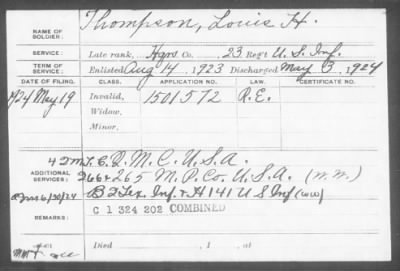 NAME OF SOLDIER: Thompson, Louis H.
SERVICE: Late rank, Hqrs Co. 23 Reg't U.S. Inf.
TERM OF SERVICE: Enlisted Aug 14, 1923 Discharged May 3, 1924
DATE OF FILING. CLASS. APPLICATION NO. LAW. CERTIFICATE NO.
1924 May 19 Invalid, 1501572 R.E.
Widow,
Minor,
Q. M. C. U.S.A.
ADDITIONAL SERVICES: 266 & 265 M. P. Co. U.S.A. (W.W.)
6/30/24 B 2 Tex Inf. & H 141 U S Inf (WW)
REMARKS: C 1 324 202 COMBINED
Died , 1 , at